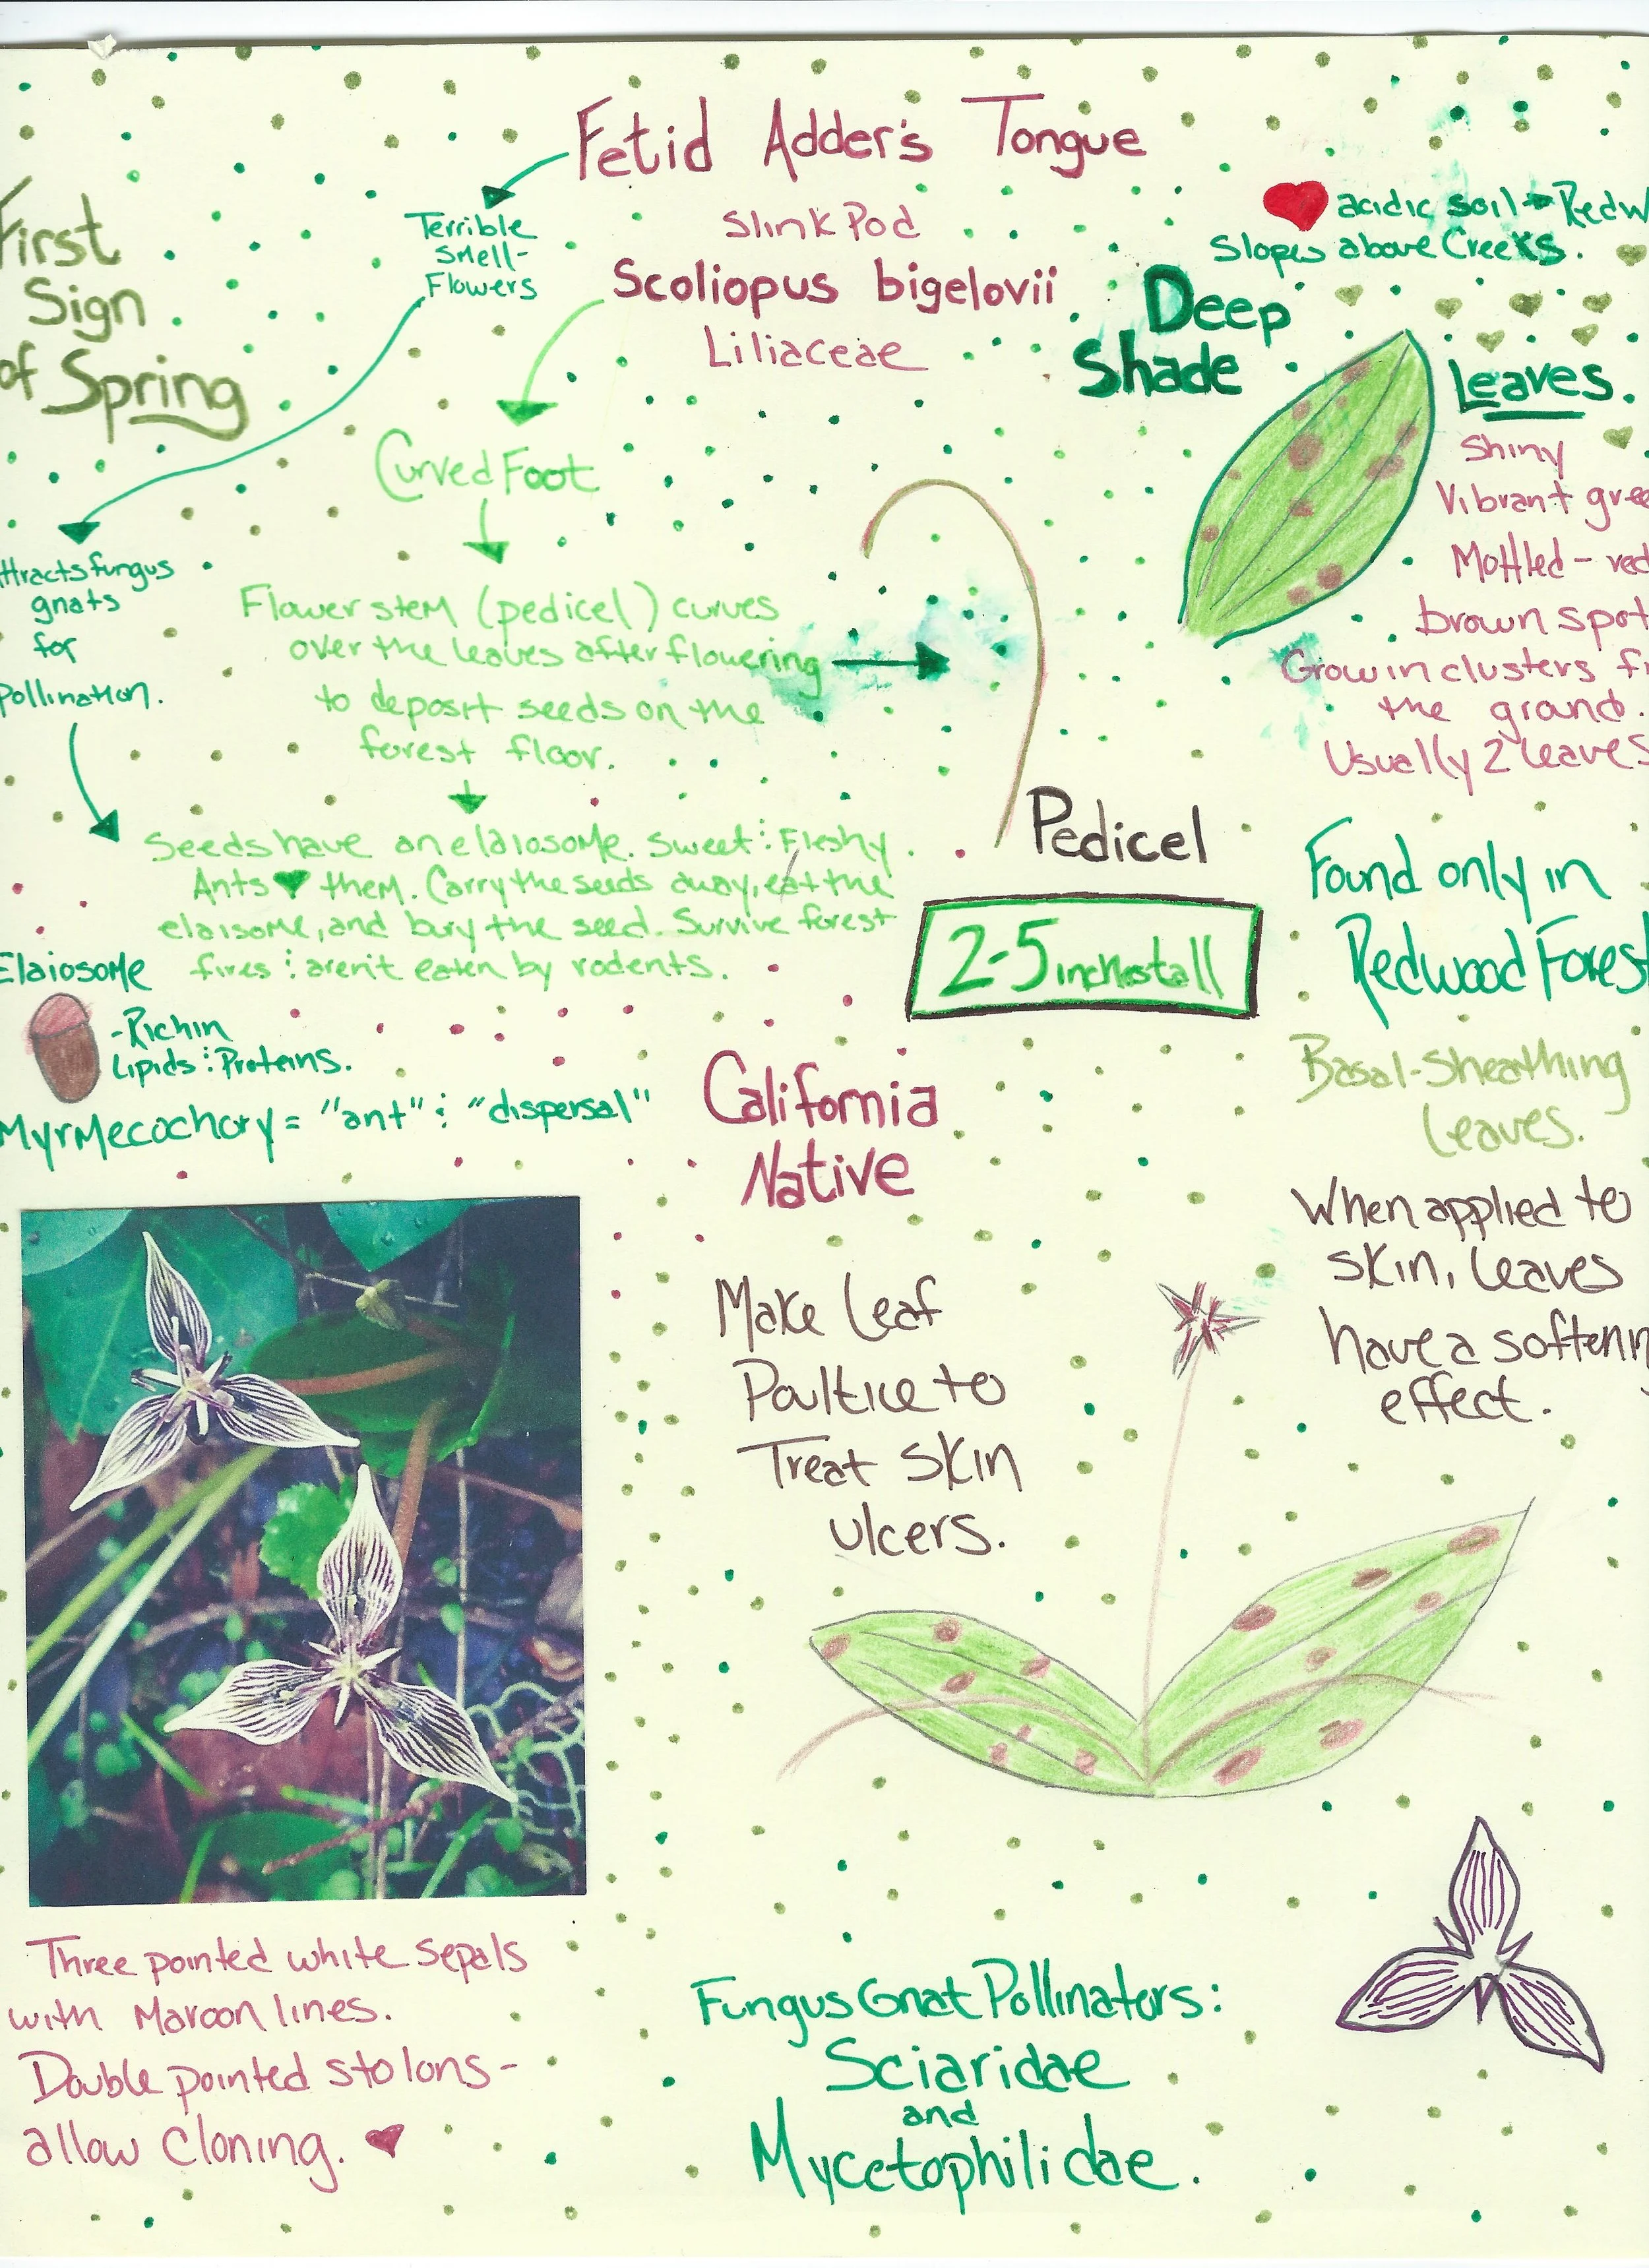 Fetid Adder's Tongue
Slink Pod
Scoliopus bigelovii
Liliaceae
First
Sign
of Spring
Terrible
Smell-
Flowers
ttracts fungus
gnats
for
Pollination.
Curved Foot
Flower stem (pedicel) curves
over the leaves after flowering
to deposit seeds on the
forest floor.
Seeds have an elaiosome. Sweet & Fleshy.
Ants ♥ them. Carry the seeds away, eat the
elaisome, and bury the seed. Survive forest
fires & aren't eaten by rodents.
Elaiosome
-Rich in
Lipids & Proteins.
Myrmecochory = "ant" & "dispersal"
Pedicel
2-5 inches tall
♥ acidic soil → Redw
Slopes above Creeks.
Deep
Shade
Leaves.
Shiny
Vibrant gree
Mottled - red
brown spot
Grow in clusters fr
the ground.
Usually 2 leaves
Found only in
Redwood Forest
Basal-Sheathing
Leaves.
When applied to
skin, leaves
have a softenin
effect.
California
Native
Make Leaf
Poultice to
Treat skin
ulcers.
Three pointed white sepals
with Maroon lines.
Double pointed stolons-
allow cloning. ♥
Fungus Gnat Pollinators:
Sciaridae
and
Mycetophilidae.